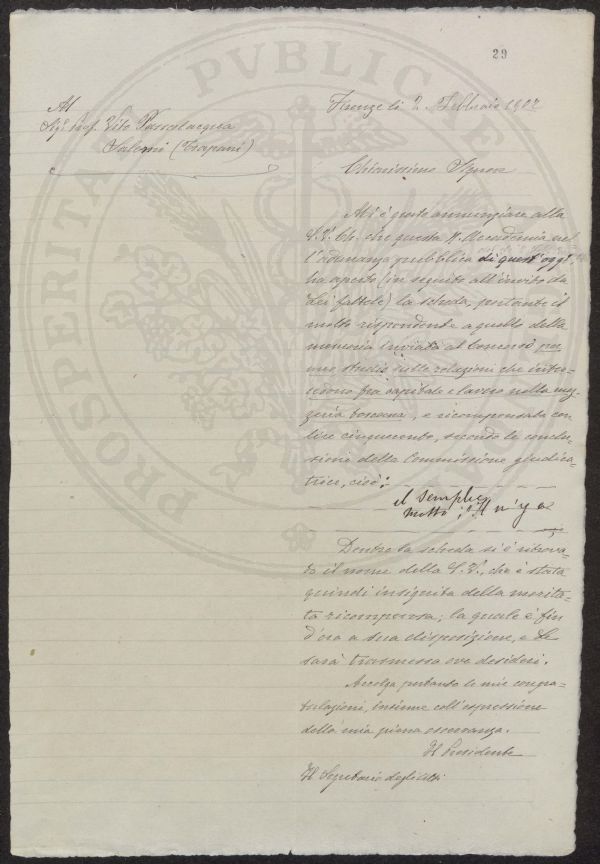 29
Al
Sig. Prof. Vito Passalacqua
Salemi (Trapani)
Firenze li 2 Febbraio 1902
Chiarissimo Signore
Mi è grato annunziare alla
S. V. Ch. che questa R. Accademia nel
l'adunanza pubblica di quest'oggi,
ha aperto (in seguito all'invito da
Lei fattole) la scheda, portante il
motto rispondente a quello della
memoria inviata al concorso per
uno studio sulle relazioni che interce
dono fra capitale e lavoro nella mez
zeria toscana, e ricompensata con
lire cinquecento, secondo le conclu
sioni della Commissione giudica
trice, cioè:
il semplice
motto: Il n'y a
Dentro la scheda si è ritrova
to il nome della S. V., che è stata
quindi insignita della merita
ta ricompensa; la quale è fin
d'ora a sua disposizione, e Le
sarà trasmessa ove desideri.
Accolga pertanto le mie congra
tulazioni, insieme coll'espressione
della mia piena osservanza.
Il Presidente
Il Segretario degli Atti
PROSPERITATI PVBLICAE